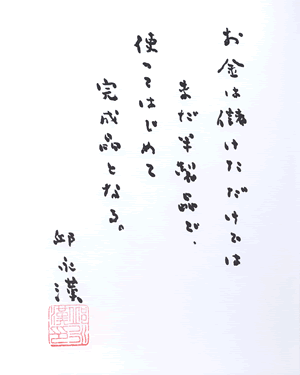 お金は儲けただけでは
まだ半製品で、
使ってはじめて
完成品となる。
邱永漢